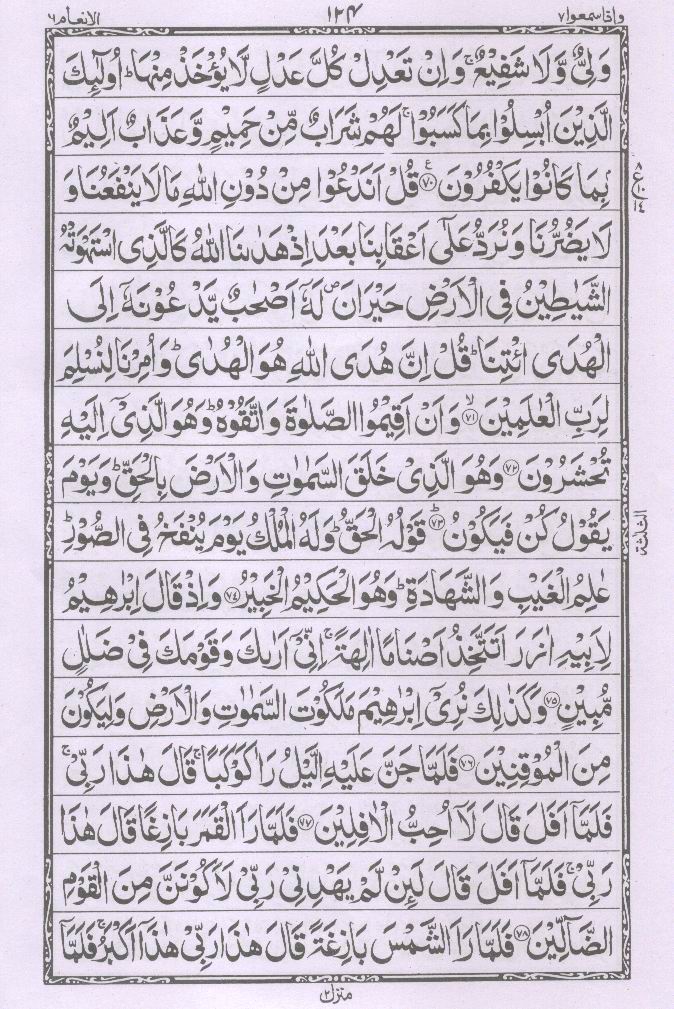 واذا سمعوا ٧ ١٢٤ الانعام ٦
وَلِيٌّ وَّلَا شَفِيْعٌ ۚ وَاِنْ تَعْدِلْ كُلَّ عَدْلٍ لَّا يُؤْخَذْ مِنْهَا ؕ اُولٰٓئِكَ
الَّذِيْنَ اُبْسِلُوْا بِمَا كَسَبُوْا ۚ لَهُمْ شَرَابٌ مِّنْ حَمِيْمٍ وَّعَذَابٌ اَلِيْمٌۢ
بِمَا كَانُوْا يَكْفُرُوْنَ ﴿۷۰﴾ قُلْ اَنَدْعُوْا مِنْ دُوْنِ اللّٰهِ مَا لَا يَنْفَعُنَا وَ
لَا يَضُرُّنَا وَنُرَدُّ عَلٰٓى اَعْقَابِنَا بَعْدَ اِذْ هَدٰىنَا اللّٰهُ كَالَّذِى اسْتَهْوَتْهُ
الشَّيٰطِيْنُ فِى الْاَرْضِ حَيْرَانَ ۪ لَهٗۤ اَصْحٰبٌ يَّدْعُوْنَهٗۤ اِلَى
الْهُدَى ائْتِنَا ؕ قُلْ اِنَّ هُدَى اللّٰهِ هُوَ الْهُدٰى ؕ وَاُمِرْنَا لِنُسْلِمَ
لِرَبِّ الْعٰلَمِيْنَ ﴿۷۱﴾ وَاَنْ اَقِيْمُوا الصَّلٰوةَ وَاتَّقُوْهُ ؕ وَهُوَ الَّذِيْۤ اِلَيْهِ
تُحْشَرُوْنَ ﴿۷۲﴾ وَهُوَ الَّذِيْ خَلَقَ السَّمٰوٰتِ وَالْاَرْضَ بِالْحَقِّ ؕ وَيَوْمَ
يَقُوْلُ كُنْ فَيَكُوْنُ ﴿۷۳﴾ قَوْلُهُ الْحَقُّ ؕ وَلَهُ الْمُلْكُ يَوْمَ يُنْفَخُ فِى الصُّوْرِ ؕ
عٰلِمُ الْغَيْبِ وَالشَّهَادَةِ ؕ وَهُوَ الْحَكِيْمُ الْخَبِيْرُ ﴿۷۴﴾ وَاِذْ قَالَ اِبْرٰهِيْمُ
لِاَبِيْهِ اٰزَرَ اَتَتَّخِذُ اَصْنَامًا اٰلِهَةً ۚ اِنِّيْۤ اَرٰىكَ وَقَوْمَكَ فِيْ ضَلٰلٍ
مُّبِيْنٍ ﴿۷۵﴾ وَكَذٰلِكَ نُرِيْۤ اِبْرٰهِيْمَ مَلَكُوْتَ السَّمٰوٰتِ وَالْاَرْضِ وَلِيَكُوْنَ
مِنَ الْمُوْقِنِيْنَ ﴿۷۶﴾ فَلَمَّا جَنَّ عَلَيْهِ الَّيْلُ رَاٰ كَوْكَبًا ۚ قَالَ هٰذَا رَبِّيْ ۚ
فَلَمَّاۤ اَفَلَ قَالَ لَاۤ اُحِبُّ الْاٰفِلِيْنَ ﴿۷۷﴾ فَلَمَّا رَاَ الْقَمَرَ بَازِغًا قَالَ هٰذَا
رَبِّيْ ۚ فَلَمَّاۤ اَفَلَ قَالَ لَئِنْ لَّمْ يَهْدِنِيْ رَبِّيْ لَاَكُوْنَنَّ مِنَ الْقَوْمِ
الضَّآلِّيْنَ ﴿۷۸﴾ فَلَمَّا رَاَ الشَّمْسَ بَازِغَةً قَالَ هٰذَا رَبِّيْ هٰذَاۤ اَكْبَرُ ۚ فَلَمَّاۤ
الثلثة
منزل ٢